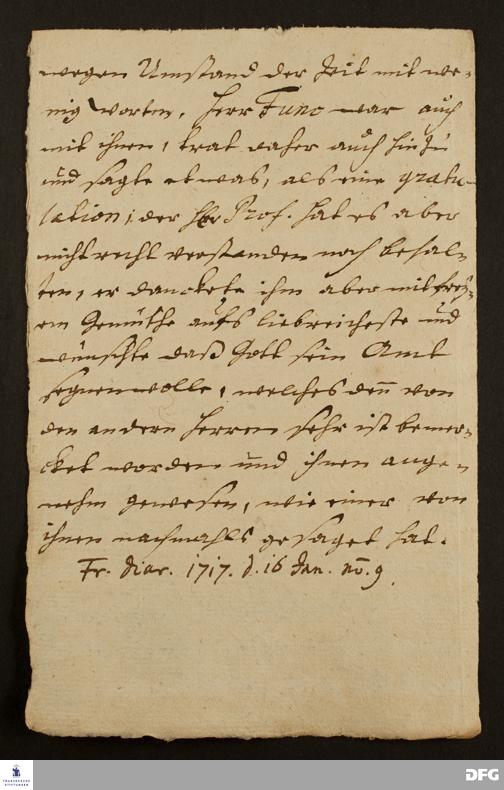 wegen Umstand der Zeit mit we-
nig worten, Herr Funo war auch
mit ihnen, trat daher auch hinzu
und sagte etwas, als eine gratu-
lation; der Herr Prof. hat es aber
nicht recht verstanden noch behal-
ten, er danckete ihm aber mit frey-
em Gemüthe aufs liebreicheste und
wünschte daß Gott sein Amt
segnen wolle, welches den̄ von
den andern Herren sehr ist bemer-
cket worden und ihnen ange-
nehm gewesen, wie einer von
ihnen nachmahls gesaget hat.
Fr. Diar. 1717. d. 16 Jan. no. 9.
FRANCKESCHE
STIFTUNGEN
DFG